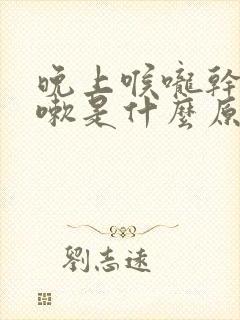 晚上喉嚨幹
嗽是什麼原
劉志遠